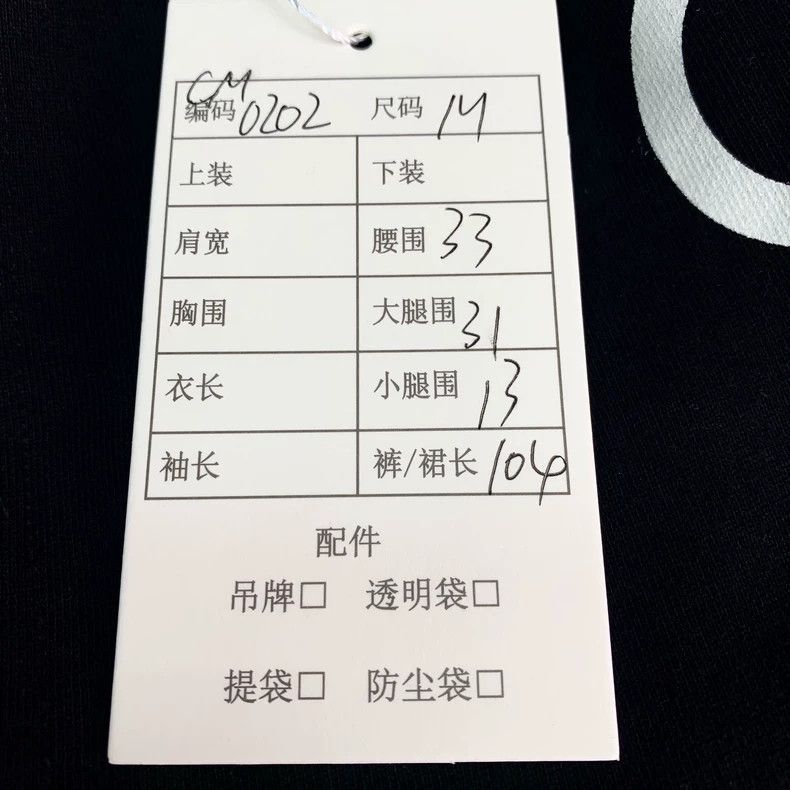 CM
编码 0202 尺码 1M
上装 下装
肩宽 腰围 33
胸围 大腿围 31
衣长 小腿围 13
袖长 裤/裙长 104
配件
吊牌□ 透明袋□
提袋□ 防尘袋□